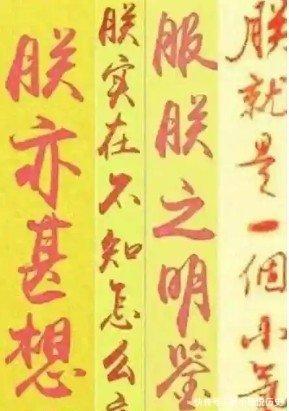 朕亦甚想
朕实在不知怎么
服朕之明鉴
朕就是一個小